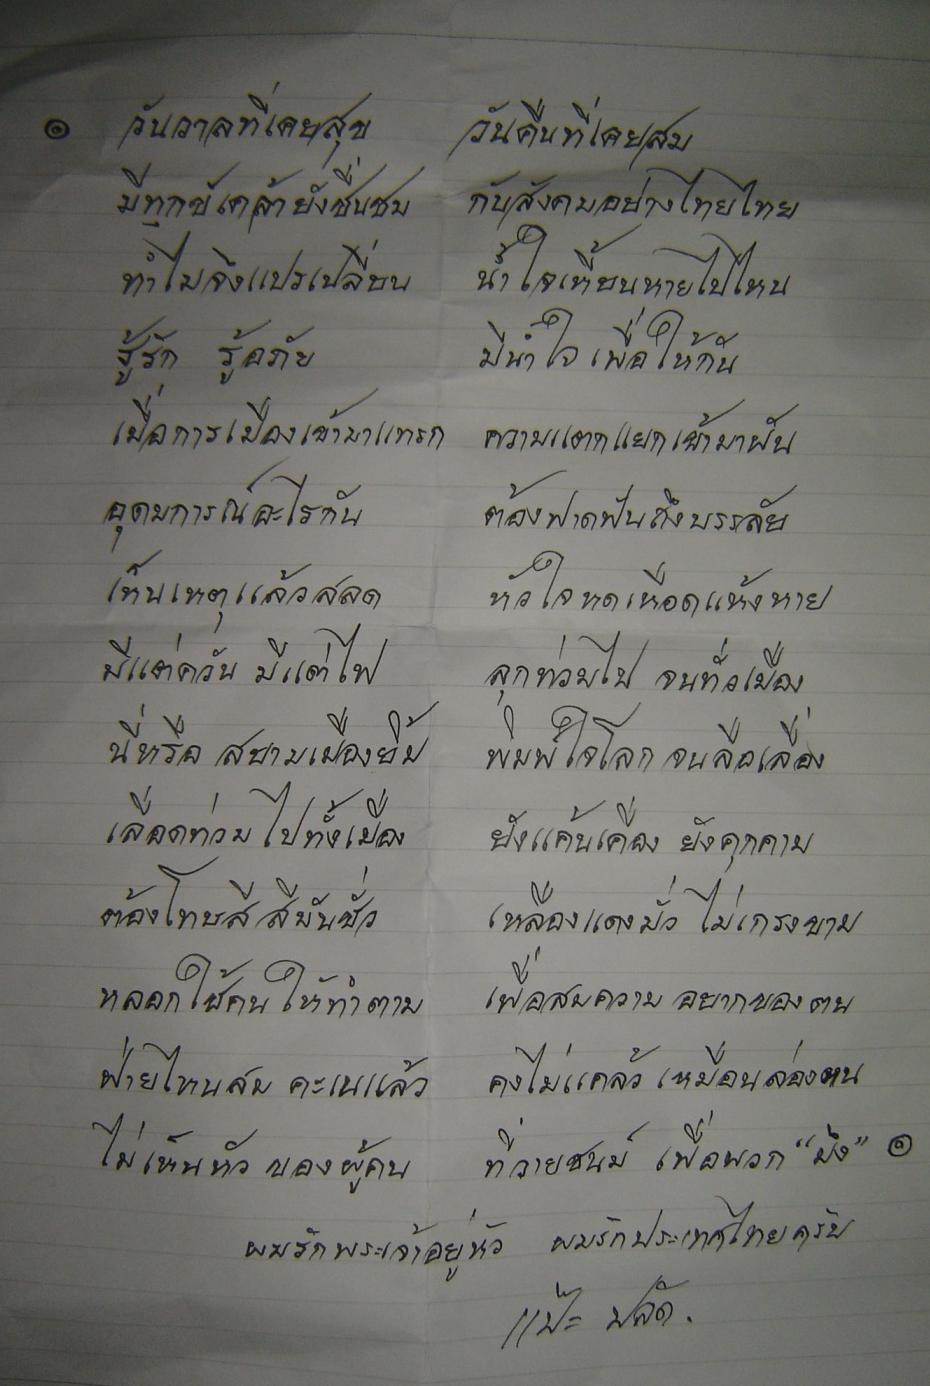 ๏ วันวาลที่เคยสุข วันคืนที่เคยสม
มีทุกข์เคล้ายังชื่นชม กับสังคมอย่างไทยไทย
ทำไมจึงแปรเปลี่ยน น้ำใจเหี้ยนหายไปไหน
รู้รัก รู้อภัย มีน้ำใจ เพื่อให้กัน
เมื่อการเมืองเข้ามาแทรก ความแตกแยกเข้ามาพัน
อุดมการณ์อะไรกัน ต้องฟาดฟันถึงบรรลัย
เห็นเหตุแล้วสลด หัวใจหดเหือดแห้งหาย
มีแต่ควัน มีแต่ไฟ ลุกท่วมไป จนทั่วเมือง
นี่หรือ สยามเมืองยิ้ม พิมพ์ใจโลก จนลือเลื่อง
เลือดท่วมไปทั้งเมือง ยังแค้นเคือง ยังคุกคาม
ต้องโทษสี สีมันชั่ว เหลืองแดงมั่ว ไม่เกรงขาม
หลอกใช้คน ให้ทำตาม เพื่อสมความ อยากของตน
ฝ่ายไหนสม คะเนแล้ว คงไม่แคล้ว เหมือนล่องหน
ไม่เห็นหัว ของผู้คน ที่วายชนม์ เพื่อพวก “มึง” ๏
ผมรักพระเจ้าอยู่หัว ผมรักประเทศไทยครับ
แป๊ะ